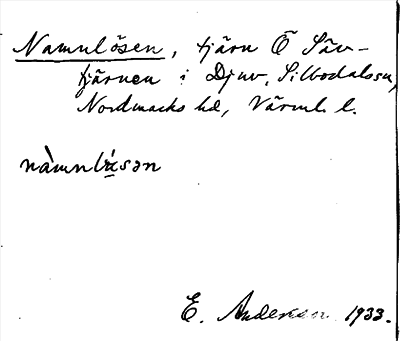 Namnlösen, tjärn Ö Säv-
tjärnen i Djuv, Silbodals sn,
Nordmarks hd, Värml. l.
nàmnlǘsən
E. Andersen 1933.